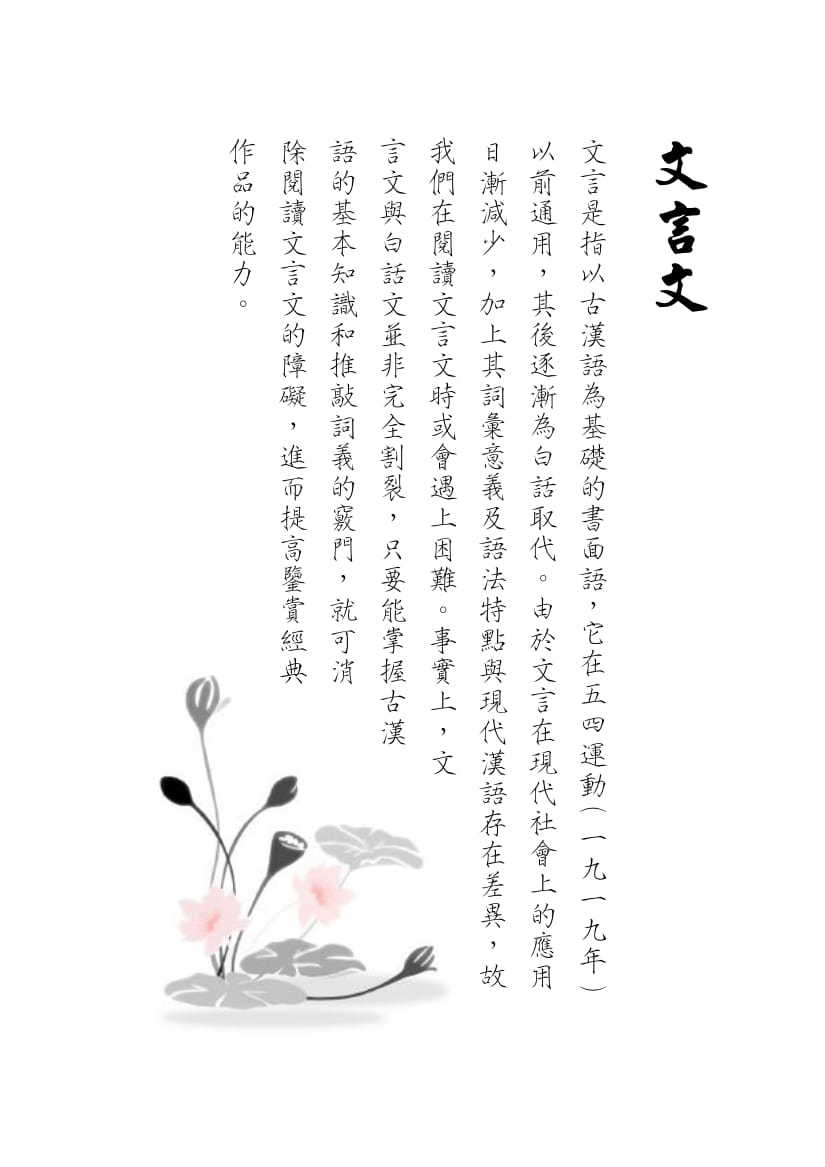 文言文
文言是指以古漢語為基礎的書面語，它在五四運動(一九一九年)
以前通用，其後逐漸為白話取代。由於文言在現代社會上的應用
日漸減少，加上其詞彙意義及語法特點與現代漢語存在差異，故
我們在閱讀文言文時或會遇上困難。事實上，文
言文與白話文並非完全割裂，只要能掌握古漢
語的基本知識和推敲詞義的竅門，就可消
除閱讀文言文的障礙，進而提高鑒賞經典
作品的能力。